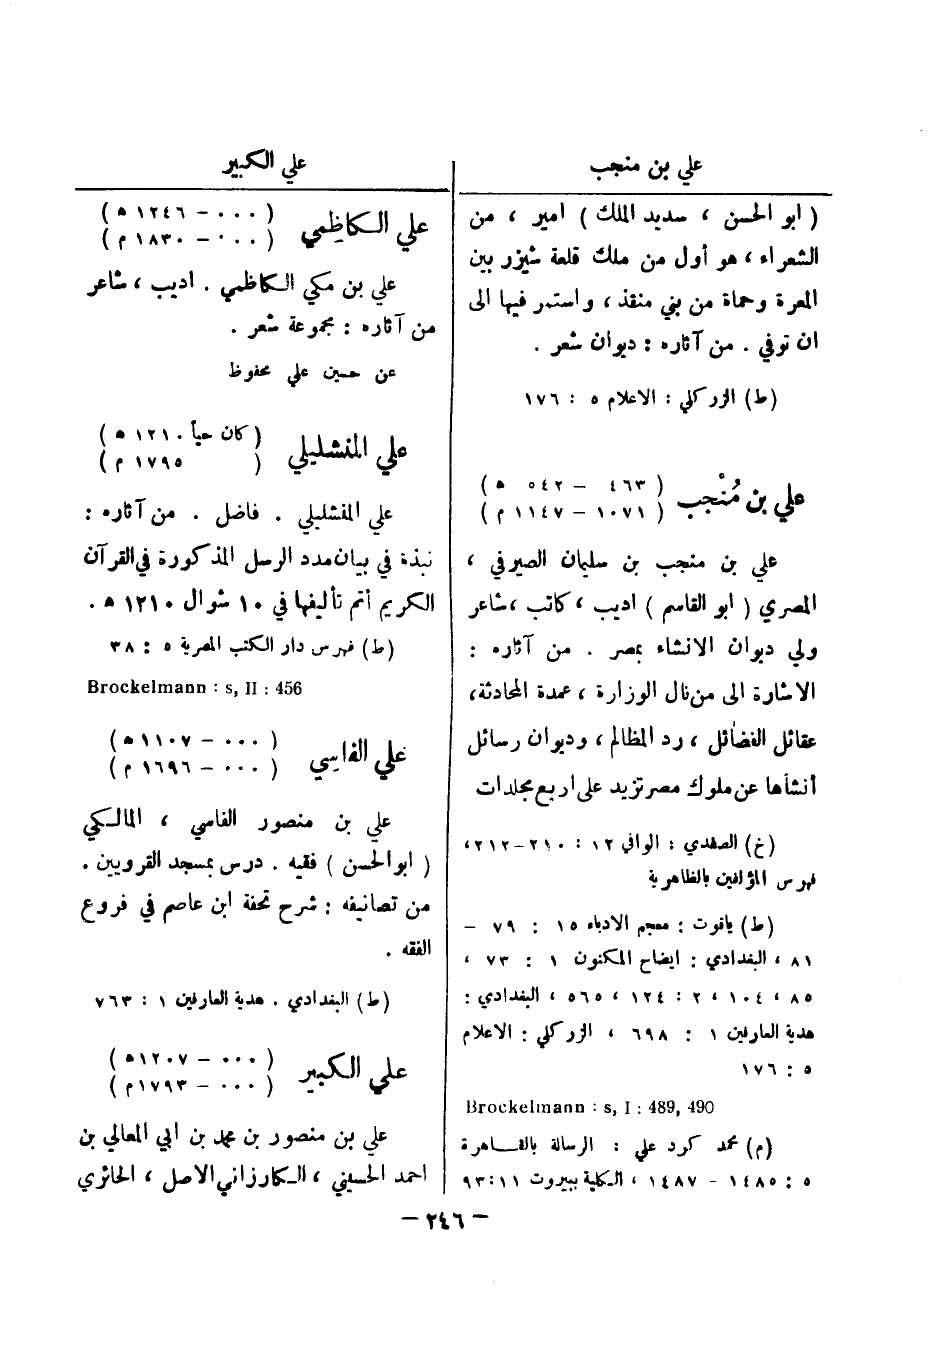 علي بن منجب
( ابو الحسن ، سديد الملك ) امير ، من
الشعراء ، هو أول من ملك قلعة شيزر بين
المعرة وحماة من بني منقذ ، واستمر فيها الى
ان توفي . من آثاره : ديوان شعر .
(ط) الزركلي : الاعلام ٥ : ١٧٦
علي بن مُنْجب ( ٤٦٣ - ٥٤٢ ه )
( ١٠٧١ - ١١٤٧ م )
علي بن منجب بن سليمان الصيرفي ،
المصري ( ابو القاسم ) اديب ، كاتب ، شاعر
ولي ديوان الانشاء بمصر . من آثاره :
الاشارة الى من نال الوزارة ، عمدة المحادثة ،
عقائل الفضائل ، رد المظالم ، وديوان رسائل
أنشأها عن ملوك مصر تزيد على اربع مجلدات
(خ) الصفدي : الوافي ١٢ : ٢١٠-٢١٢ ،
فهرس المؤلفين بالظاهرية
(ط) ياقوت : معجم الادباء ١٥ : ٧٩ -
٨١ ، البغدادي : ايضاح المكنون ١ : ٧٣ ،
٨٥ ، ١٠٤ ، ٢ : ١٢٤ ، ٥٦٥ ، البغدادي :
هدية العارفين ١ : ٦٩٨ ، الزركلي : الاعلام
٥ : ١٧٦
Brockelmann : s, I : 489, 490
(م) محمد كرد علي : الرسالة بالقاهرة
٥ : ١٤٨٥ - ١٤٨٧ ، الكلية ببيروت ١١ : ٩٣
علي الكبير
علي الكاظِمي ( ٠٠٠ - ١٢٤٦ ه )
( ٠٠٠ - ١٨٣٠ م )
علي بن مكي الكاظمي . اديب ، شاعر
من آثاره : مجموعة شعر .
عن حسين علي محفوظ
علي المنشليلي ( كان حياً ١٢١٠ ه )
( ١٧٩٥ م )
علي المنشليلي . فاضل . من آثاره :
نبذة في بيان مدد الرسل المذكورة في القرآن
الكريم أتم تأليفها في ١٠ شوال ١٢١٠ ه .
(ط) فهرس دار الكتب المصرية ٥ : ٣٨
Brockelmann : s, II : 456
علي الفاسِي ( ٠٠٠ - ١١٠٧ ه )
( ٠٠٠ - ١٦٩٦ م )
علي بن منصور الفاسي ، المالكي
( ابو الحسن ) فقيه . درس بمسجد القرويين .
من تصانيفه : شرح تحفة ابن عاصم في فروع
الفقه .
(ط) البغدادي . هدية العارفين ١ : ٧٦٣
علي الكبير ( ٠٠٠ - ١٢٠٧ ه )
( ٠٠٠ - ١٧٩٣ م )
علي بن منصور بن محمد بن ابي المعالي بن
احمد الحسيني ، الكارزاني الاصل ، الحائري
- ٢٤٦ -